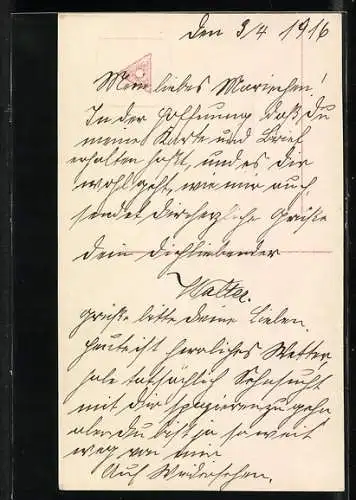 den 3/4 1916
Mein liebes Mariechen!
In der Hoffnung daß du
meine Karte und Brief
erhalten hast, und es dir
wohl geht, wie mir auch,
sendet dir herzliche Grüße
dein dichliebender
Walter.
grüße bitte deine Lieben.
heute ist herrliches Wetter,
habe tatsächlich Sehnsucht
mit dir spazieren zu gehn
aber du bist ja so weit
weg von mir
Auf Wiedersehen.